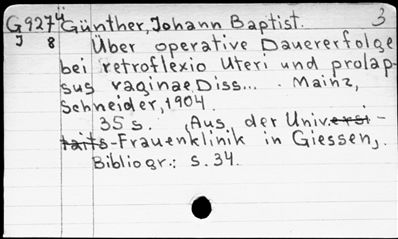 G9274 Günther, Johann Baptist. 3
J 8 Über operative Dauererfolge
bei retroflexio Uteri und prolap-
sus vaginae, Diss... . Mainz,
Schneider, 1904.
35 s. (Aus der Univ.ersi-
täits-Frauenklinik in Giessen).
Bibliogr.: s. 34.